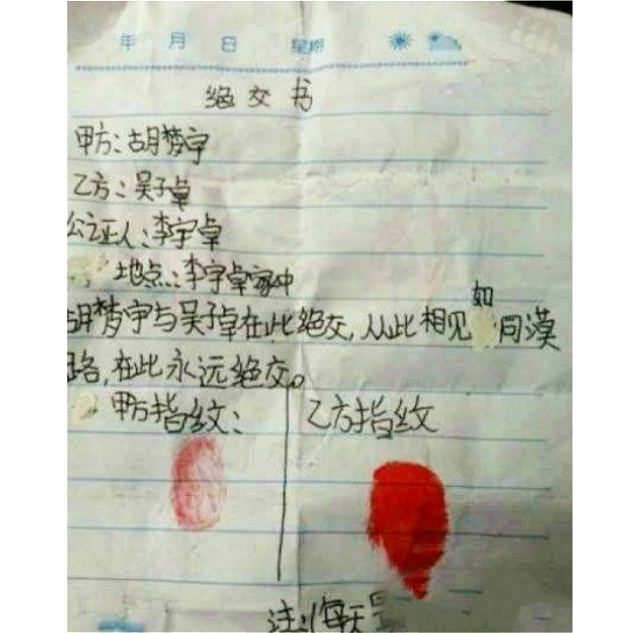 年 月 日 星期
绝交书
甲方:胡梦宇
乙方:吴子卓
公证人:李宇卓
地点:李宇卓家中
胡梦宇与吴子卓在此绝交,从此相见如同漠
路,在此永远绝交。
甲方指纹: 乙方指纹
注:(每天